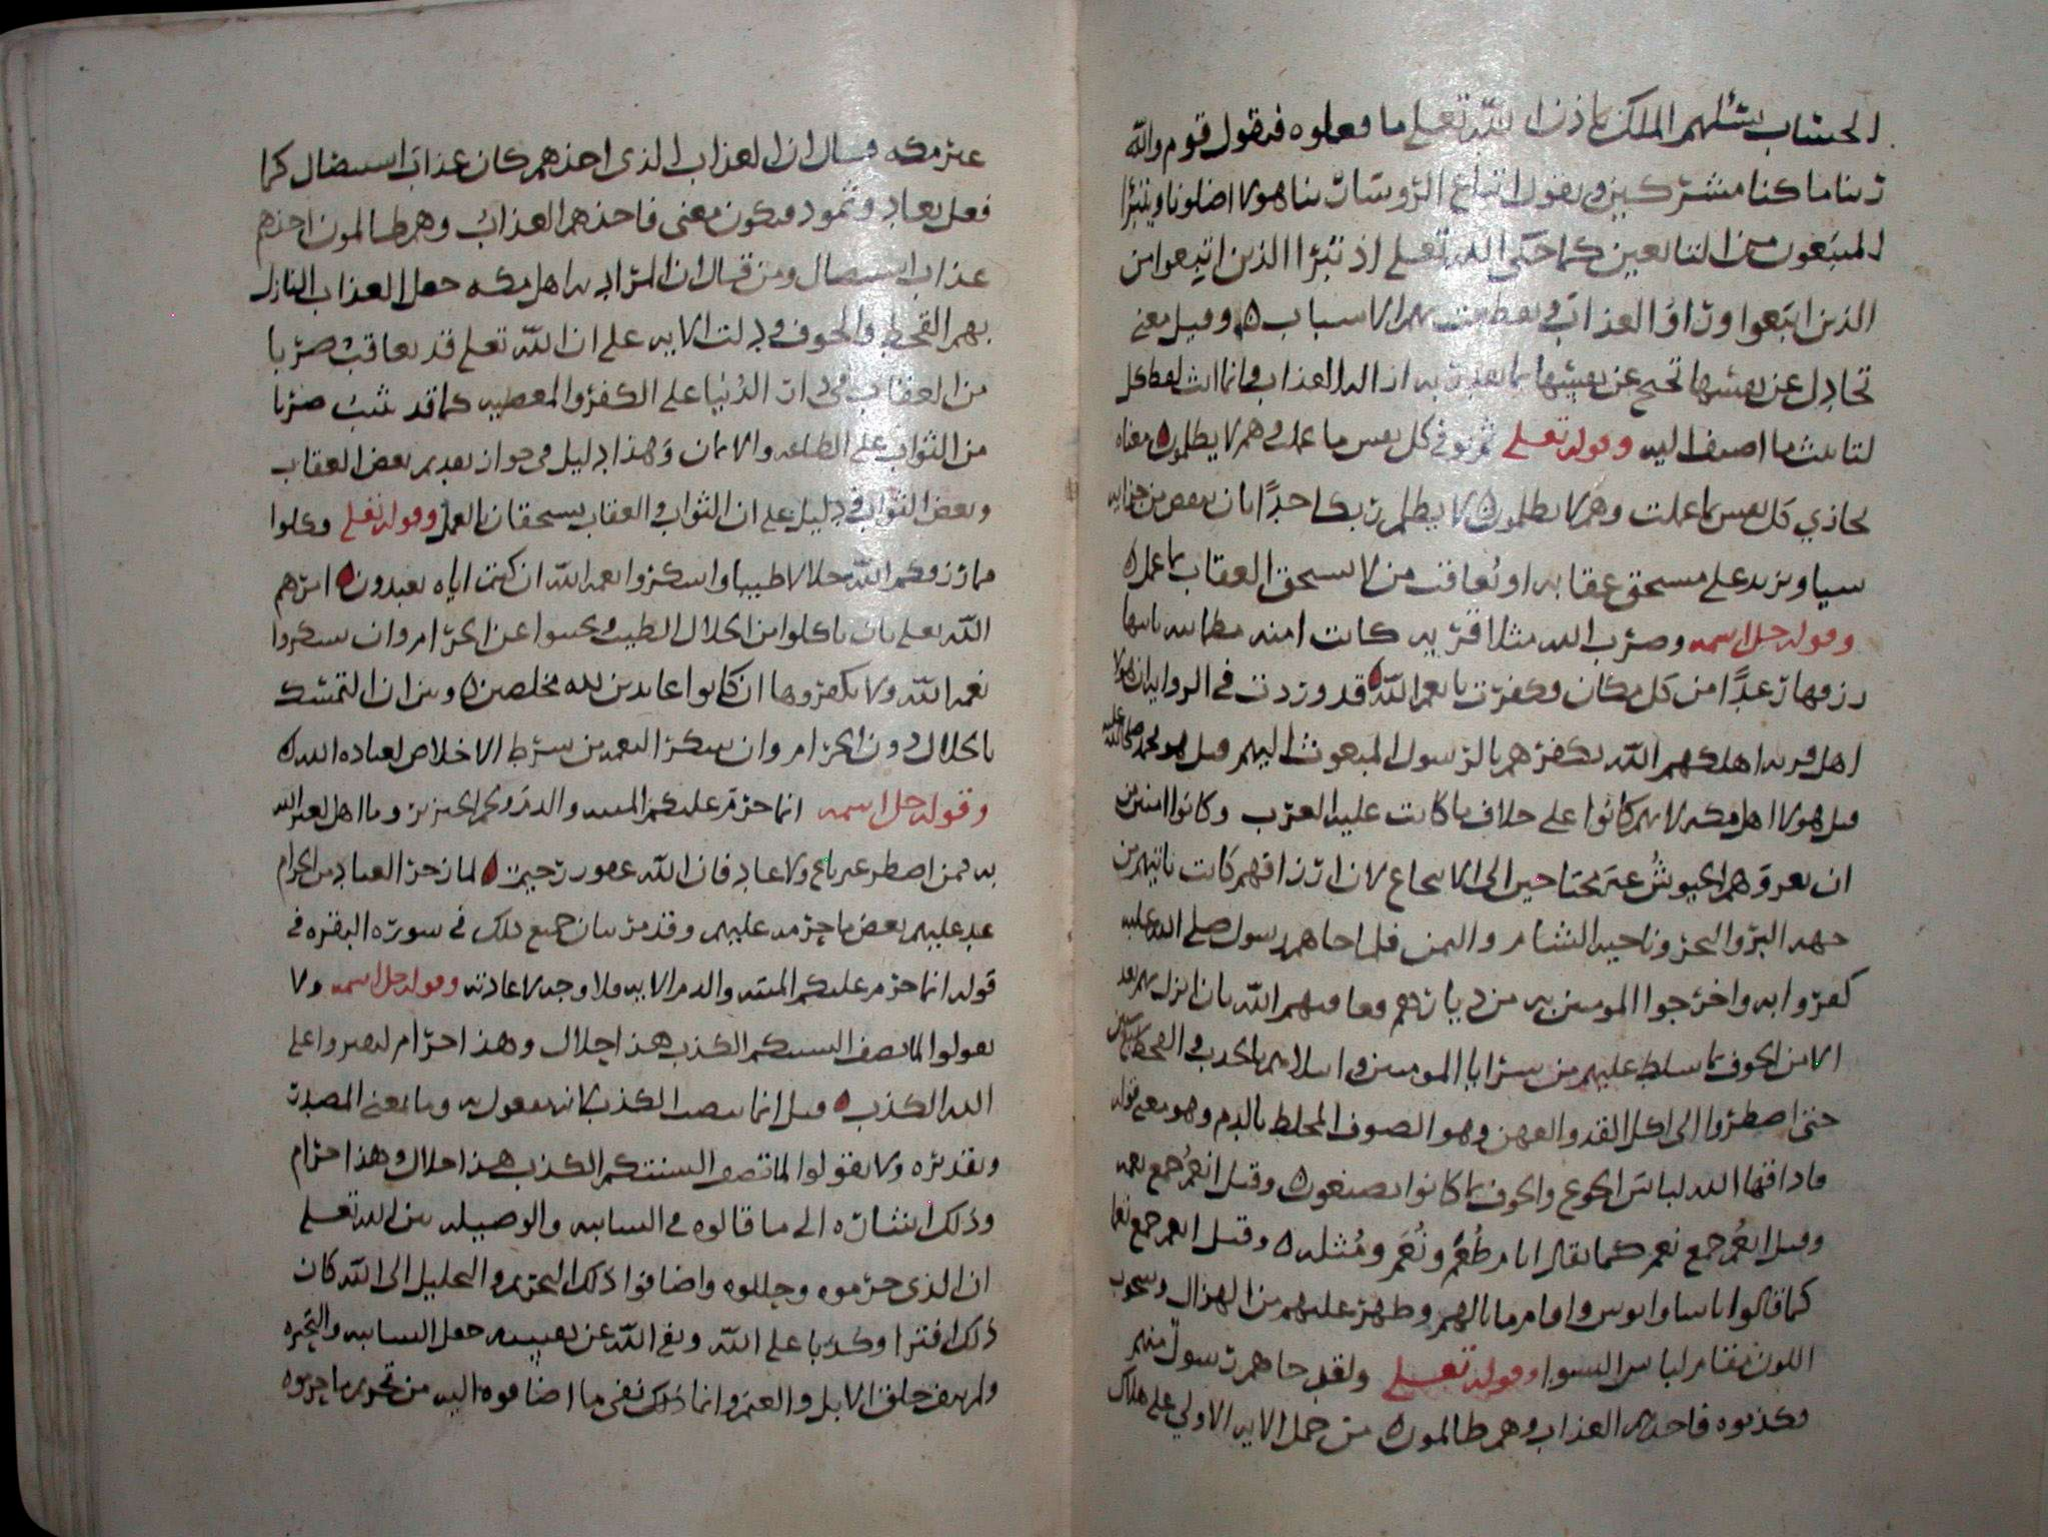 الحساب يسئلهم الملك باذن الله تعلى ما فعلوه فيقول قوم والله
ربنا ما كنا مشركين ويقول اتباع الروسا ربنا هولا اضلونا ويتبرا
المتبعون من التابعين كما حكى الله تعلى اذ تبرا الذين اتبعوا من
الذين اتبعوا وراوا العذاب وتقطعت بهم الاسباب ٥ وقيل معنى
تجادل عن نفسها تحتج عن نفسها بما تقدر به ازالة العذاب وانما انث لفظ كل
لتانيث ما اضيف اليه وقوله تعلى ثم توفى كل نفس ما عملت وهم لا يظلمون معناه
يجازي كل نفس بما عملت وهم لا يظلمون لا يظلم ربك احدا بان ينقص من جزايه
شيا ويزيد على مستحق عقابه او يعاقب من لا يستحق العقاب بما عمل ٥
وقوله جل اسمه وضرب الله مثلا قرية كانت امنة مطمانة ياتيها
رزقها رغدا من كل مكان وكفرت بانعم الله قد وردت في الرواية ان هولا
اهل قرية اهلكهم الله بكفرهم بالرسول المبعوث اليهم قيل هو محمد صلى الله عليه
قيل هولا اهل مكة لانهم كانوا على خلاف ما كانت عليه العرب وكانوا امنين من
ان تغزوهم الجيوش غير محتاجين الى الانتجاع لان ارزاقهم كانت تاتيهم من
جهة البر والبحر وناحية الشام واليمن فلما جاهم رسول صلى الله عليه
كفروا به واخرجوا المومنين به من ديارهم فعاقبهم الله بان ابزل بهم بعد
الامن الخوف بما سلط عليهم من سرايا المومنين وابتلاهم بالجدب والقحط
حتى اضطروا الى اكل القد والعهن وهو الصوف المخلط بالدم وهو معنى قوله
فاذاقها الله لباس الجوع والخوف بما كانوا يصنعون ٥ وقيل انعم جمع نعمة
وقيل انعم جمع نعم كما يقال ايام طعم ونعم ومثله ٥ وقيل انعم جمع نعما
كما قالوا باسا وابوس وافامر ما نالهم وظهر عليهم من الهزال وشحوب
اللون مقام لباس السوا وقوله تعلى ولقد جاهم رسول منهم
فكذبوه فاخذهم العذاب وهم ظالمون من حمل الاية الاولى على هلاك
غير مكة قال ان العذاب الذى اخذهم كان عذاب استيصال كما
فعل بعاد وثمود فيكون معنى فاخذهم العذاب وهم ظالمون اخذهم
عذاب استيصال ومن قال ان المراد به اهل مكة جعل العذاب النازل
بهم القحط والخوف ودلت الاية على ان الله تعلى قد يعاقب ضربا
من العقاب في دار الدنيا على الكفر والمعصية كما قد يثيب ضربا
من الثواب على الطاعة والايمان وهذا دليل فى جواز تقديم بعض العقاب
وبعض الثواب ودليل على ان الثواب والعقاب يستحقان بالعمل وقوله تعلى وكلوا
مما رزقكم الله حلالا طيبا واشكروا نعمة الله ان كنتم اياه تعبدون امرهم
الله تعلى بان ياكلوا من الحلال الطيب ويجتنبوا عن الحرام وان يشكروا
نعمة الله ولا يكفروها ان كانوا عابدين لله مخلصين ٥ وبين ان التمسك
بالحلال دون الحرام وان يشكر النعمة من شرط الاخلاص لعبادة الله ٥
وقوله جل اسمه انما حرم عليكم الميتة والدم ولحم الخنزير وما اهل لغير الله
به فمن اضطر غير باغ ولا عاد فان الله غفور رحيم لما زجر العباد من الحرام
عد عليهم بعض ما حرمه عليهم وقد مر بيان جميع ذلك في سورة البقرة في
قوله انما حرم عليكم الميتة والدم الاية فلا وجه لاعادته وقوله جل اسمه ولا
تقولوا لما تصف السنتكم الكذب هذا حلال وهذا حرام لتفتروا على
الله الكذب قيل انما نصب الكذب لانه مفعول به وما بمعنى المصدر
وتقديره ولا تقولوا لما تصف السنتكم الكذب هذا حلال وهذا حرام
وذلك اشارة الى ما قالوه في السايبة والوصيلة بين الله تعلى
ان الذى حرموه وحللوه واضافوا ذلك التحريم والتحليل الى الله كان
ذلك افترا وكذبا على الله ونفى الله عن نفسه جعل السايبة والبحيرة
ولم ينف خلق الابل والغنم وانما ذلك نفى ما اضافوه اليه من تحريم ما حرموه